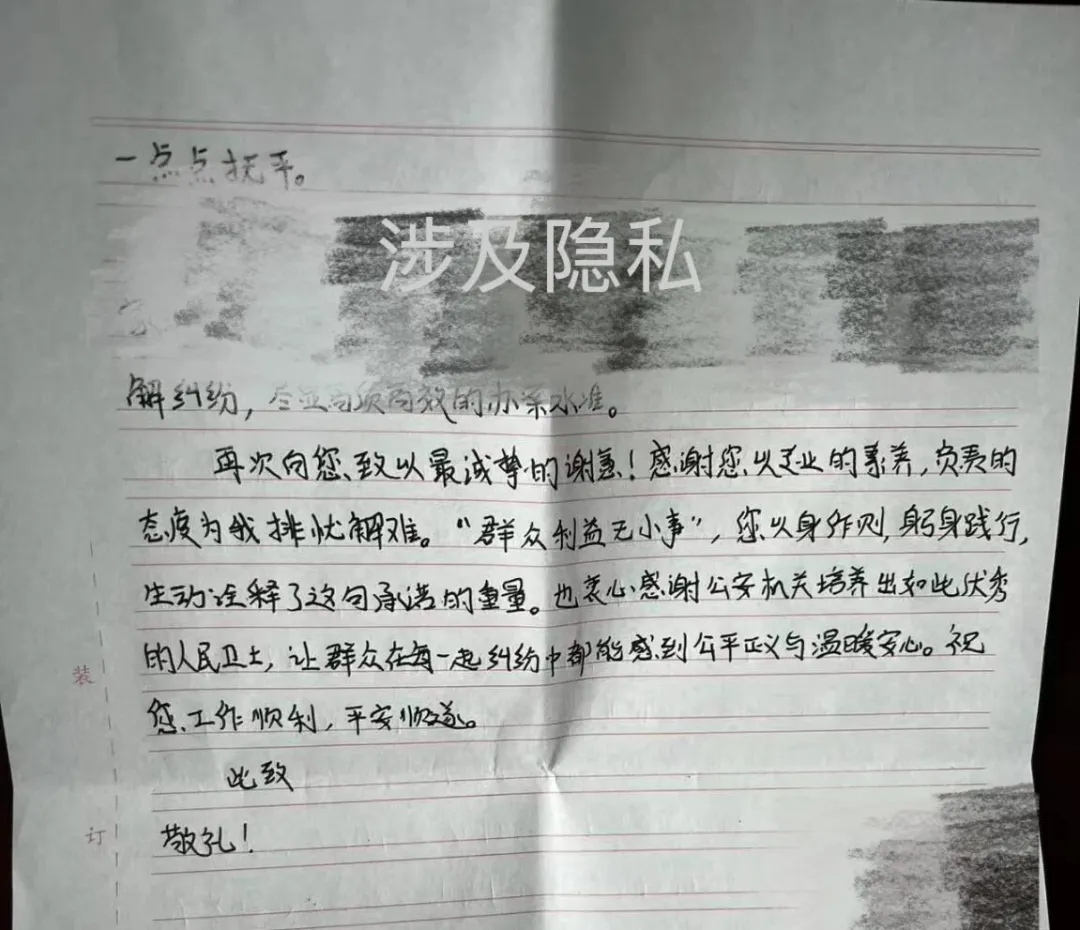 一点点抚平。
涉及隐私
解纠纷，尽显高效的办案水准。
再次向您致以最诚挚的谢意！感谢您以专业的素养，负责的
态度为我排忧解难。“群众利益无小事”，您以身作则，躬身践行，
生动诠释了这句承诺的重量。也衷心感谢公安机关培养出如此优秀
的人民卫士，让群众在每一起纠纷中都能感到公平正义与温暖安心。祝
您工作顺利，平安顺遂。
此致
敬礼！
装
订